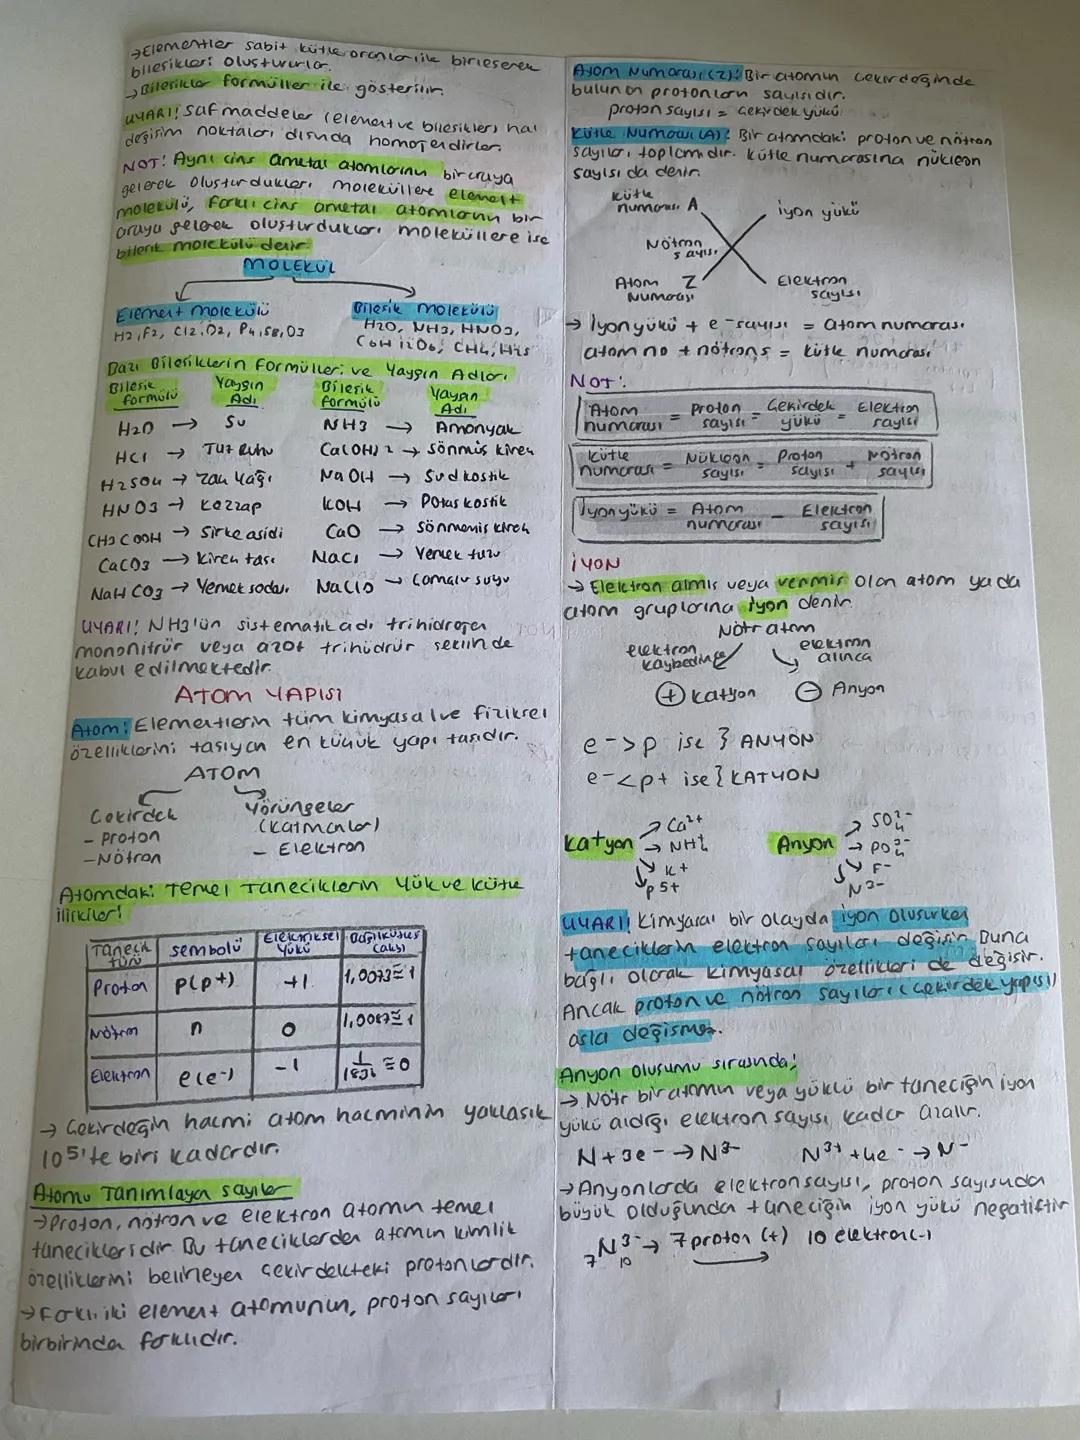 →Elementler sabit kütle oranları ile birleşerek
bileşikleri oluştururlar.
→Bileşikler formüller ile gösterilir.
UYARI! Saf maddeler (element ve bileşikler) hal
değişim noktaları dışında homojendirler.
NOT! Aynı cins ametal atomlarının bir araya
gelerek oluşturdukları moleküllere element
molekülü, farklı cins ametal atomlarının bir
araya gelerek oluşturdukları moleküllere ise
bileşik molekülü denir.
MOLEKÜL
Element molekülü
H2, F2, Cl2, O2, P4, S8, O3
Bileşik molekülü
H2O, NH3, HNO3,
C6H12O6, CH4, H2S
Bazı Bileşiklerin Formülleri ve Yaygın Adları
Bileşik formülü Yaygın Adı Bileşik formülü Yaygın Adı
H2O → Su NH3 → Amonyak
HCl → Tuz Ruhu Ca(OH)2 → Sönmüş kireç
H2SO4 → Zaç Yağı NaOH → Sud kostik
HNO3 → Kezzap KOH → Potas kostik
CH3COOH → Sirke asidi CaO → Sönmemiş kireç
CaCO3 → Kireç taşı NaCl → Yemek tuzu
NaHCO3 → Yemek sodası NaClO → Çamaşır suyu
UYARI! NH3'ün sistematik adı trihidrojen
mononitrür veya azot trihidrür şeklinde
kabul edilmektedir.
ATOM YAPISI
Atom: Elementlerin tüm kimyasal ve fiziksel
özelliklerini taşıyan en küçük yapı taşıdır.
ATOM
Çekirdek
- Proton
-Nötron
Yörüngeler
(Katmanlar)
- Elektron
Atomdaki Temel Taneciklerin Yük ve Kütle
ilişkileri
Tanecik türü sembolü Elektriksel Yükü Bağıl kütlesi (akb)
Proton p(p+) +1 1,0073≅1
Nötron n 0 1,0087≅1
Elektron e(e-) -1 1/1836 ≅0
→ Çekirdeğin hacmi atom hacminin yaklaşık
10⁵'te biri kadardır.
Atomu Tanımlayan sayılar
→Proton, nötron ve elektron atomun temel
tanecikleridir. Bu taneciklerden atomun kimlik
özelliklerini belirleyen çekirdekteki protonlardır.
→Farklı iki element atomunun, proton sayıları
birbirinden farklıdır.
Atom Numarası(Z): Bir atomun çekirdeğinde
bulunan protonların sayısıdır.
proton sayısı = çekirdek yükü
Kütle Numarası(A): Bir atomdaki proton ve nötron
sayıları toplamıdır. Kütle numarasına nükleon
sayısı da denir.
kütle numarası A
iyon yükü
Nötron sayısı
Atom Numarası Z
Elektron sayısı
→ İyon yükü + e⁻ sayısı = atom numarası
atom no + nötron s = kütle numarası
NOT:
Atom numarası = Proton sayısı = Çekirdek yükü = Elektron sayısı
Kütle numarası = Nükleon sayısı = Proton sayısı + Nötron sayısı
İyon yükü = Atom numarası - Elektron sayısı
İYON
→ Elektron almış veya vermiş olan atom ya da
atom gruplarına iyon denir.
Nötr atom
elektron kaybedince
elektron alınca
⊕ katyon ⊖ Anyon
e->p ise } ANYON
e-<p+ ise } KATYON
Katyon → Ca²⁺
→ NH₄⁺
→ K+
→ P5+
Anyon → SO₄²⁻
→ PO₄³⁻
→ F-
→ N3-
UYARI! Kimyasal bir olayda iyon oluşurken
taneciklerin elektron sayıları değişir. Buna
bağlı olarak kimyasal özellikleri de değişir.
Ancak proton ve nötron sayıları (çekirdek yapısı)
asla değişmez.
Anyon oluşumu sırasında;
→ Nötr bir atomun veya yüklü bir taneciğin iyon
yükü aldığı elektron sayısı kadar azalır.
N + 3e- → N³⁻ N³⁺ + 4e- → N-
→Anyonlarda elektron sayısı, proton sayısından
büyük olduğundan taneciğin iyon yükü negatiftir
₇N³⁻₁₀ → 7 proton (+) 10 elektron(-)